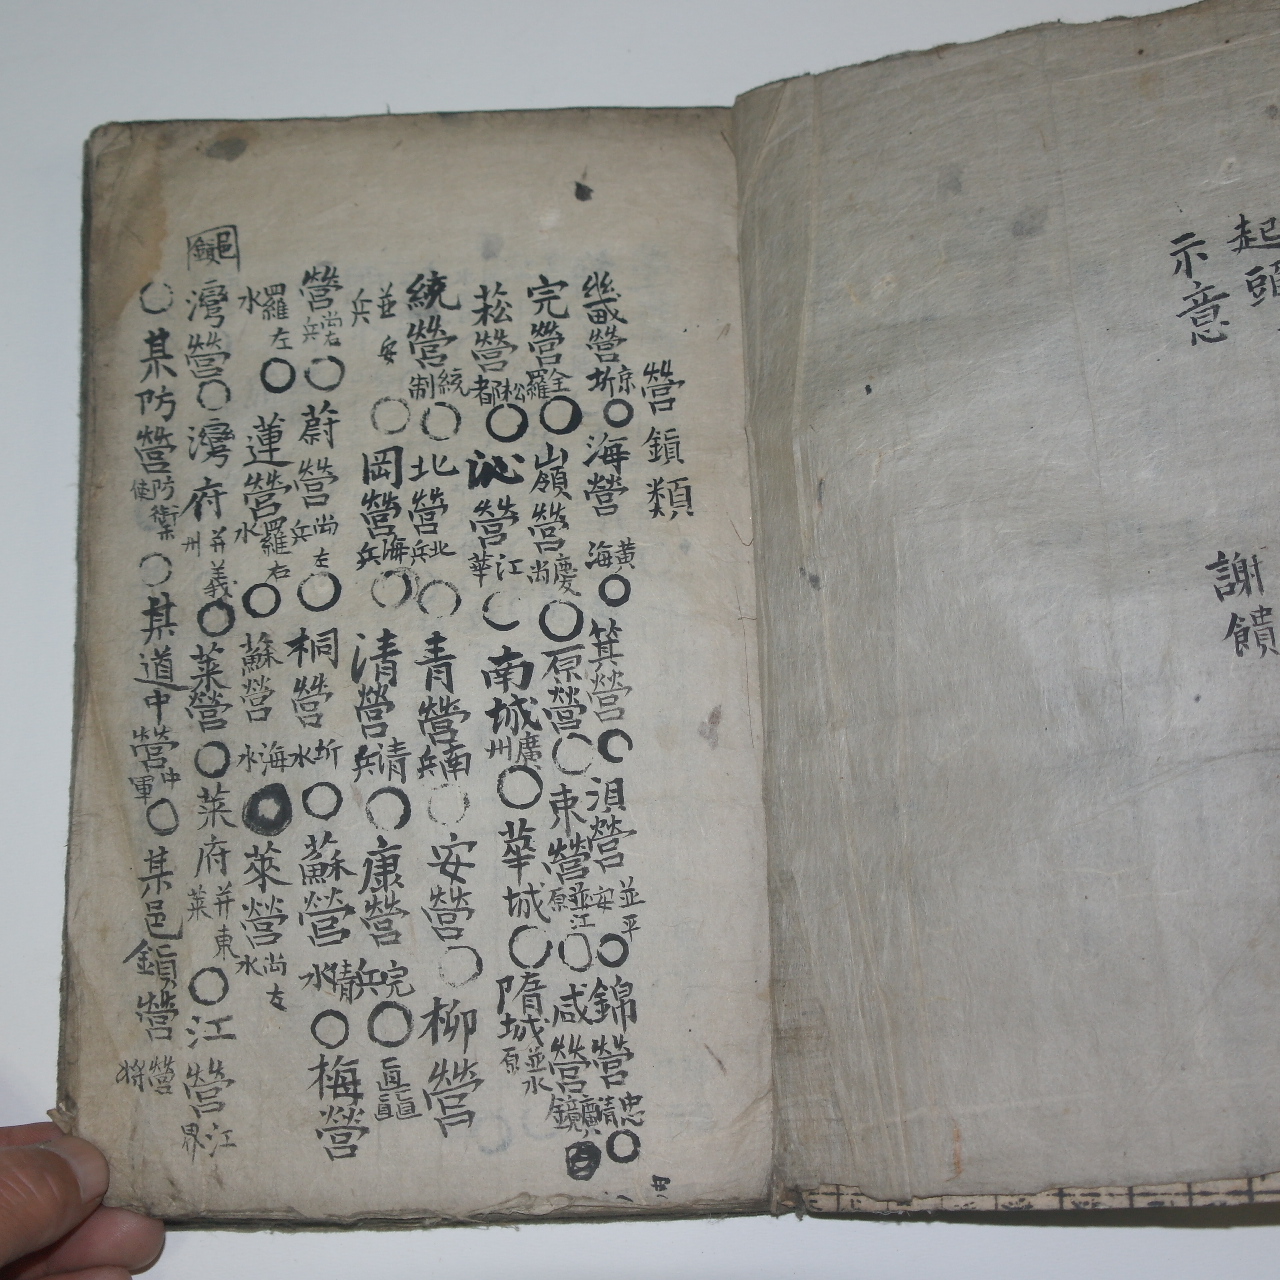 起頭
示意
謝饋
營鎭類
畿營 京圻 ○ 海營 黃海 ○ 箕營 ○ 浿營 並平安 ○ 錦營 忠淸 ○
完營 全羅 ○ 嶺營 慶尙 ○ 原營 ○ 東營 並江原 ○ 咸營 咸鏡
菘營 松都 ○ 沁營 江華 ○ 南城 廣州 ○ 華城 ○ 隋城 並水原
統營 統制 ○ 北營 北兵 ○ 青營 南兵 ○ 安營 ○ 柳營
並安兵 ○ 岡營 海兵 ○ 清營 清兵 ○ 康營 完兵 ○
營 尙右兵 ○ 蔚營 尙左兵 ○ 桐營 圻水 ○ 蘇營 清水 ○ 梅營
羅左水 ○ 蓮營 羅右水 ○ 蘇營 海水 萊營 尙左水
邑鎭
灣營 ○ 灣府 并義州 ○ 萊營 ○ 萊府 并東萊 ○ 江營 江界
○ 某防營 防衛使 ○ 某道中營 中軍 ○ 某邑鎭營 營將